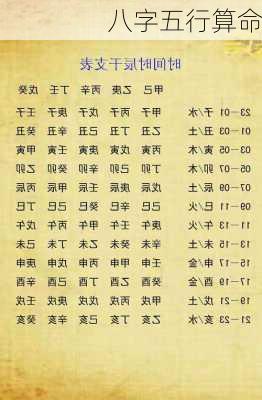 八字五行算命
时间时辰干支表
甲己 乙庚 丙辛 丁壬 戊癸
23—01 子/水 甲子 丙子 戊子 庚子 壬子
01—03 丑/土 乙丑 丁丑 己丑 辛丑 癸丑
03—05 寅/木 丙寅 戊寅 庚寅 壬寅 甲寅
05—07 卯/木 丁卯 己卯 辛卯 癸卯 乙卯
07—09 辰/土 戊辰 庚辰 壬辰 甲辰 丙辰
09—11 巳/火 己巳 辛巳 癸巳 乙巳 丁巳
11—13 午/火 庚午 壬午 甲午 丙午 戊午
13—15 未/土 辛未 癸未 乙未 丁未 己未
15—17 申/金 壬申 甲申 丙申 戊申 庚申
17—19 酉/金 癸酉 乙酉 丁酉 己酉 辛酉
19—21 戌/土 甲戌 丙戌 戊戌 庚戌 壬戌
21—23 亥/水 乙亥 丁亥 己亥 辛亥 癸亥